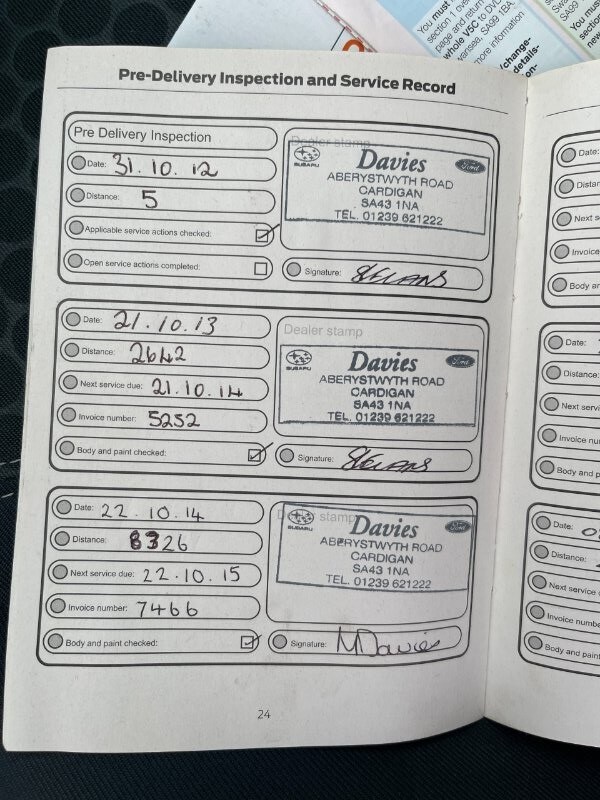 You must
section 1 ove
page and return
whole V5C to DV
vansea, SA99 1BA,
more information
/change-
details-
on-
Swa
SA99
You must
section
new
Pre-Delivery Inspection and Service Record
Pre Delivery Inspection
Date: 31.10.12
Distance: 5
Applicable service actions checked:
Open service actions completed:
Dealer stamp
SUBARU Davies Ford
ABERYSTWYTH ROAD
CARDIGAN
SA43 1NA
TEL. 01239 621222
Signature:
Date: 21.10.13
Distance: 2642
Next service due: 21.10.14
Invoice number: 5252
Body and paint checked:
Dealer stamp
SUBARU Davies Ford
ABERYSTWYTH ROAD
CARDIGAN
SA43 1NA
TEL. 01239 621222
Signature:
Date: 22.10.14
Distance: 8326
Next service due: 22.10.15
Invoice number: 7466
Body and paint checked:
Dealer stamp
SUBARU Davies Ford
ABERYSTWYTH ROAD
CARDIGAN
SA43 1NA
TEL. 01239 621222
Signature: M Davies
24
Date:
Distan
Next s
Invoice
Body ar
Date:
Distance:
Next servi
Invoice nu
Body and p
Date: 0
Distance:
Next service
Invoice numbe
Body and paint